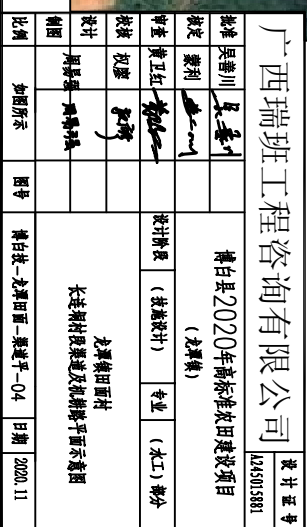 广西瑞班工程咨询有限公司
设计证号
A245015881
批准 吴善川
核定 蒙利
审查 黄卫红
校核 权廖
设计
制图 周易强 周易强
比例 如图所示
博白县2020年高标准农田建设项目
(龙潭镇)
设计阶段 (技施设计) 专业 (水工)部分
龙潭镇田面村
长连塘村段渠道及机耕路平面示意图
图号 博白技-龙潭田面-渠道平-04 日期 2020.11